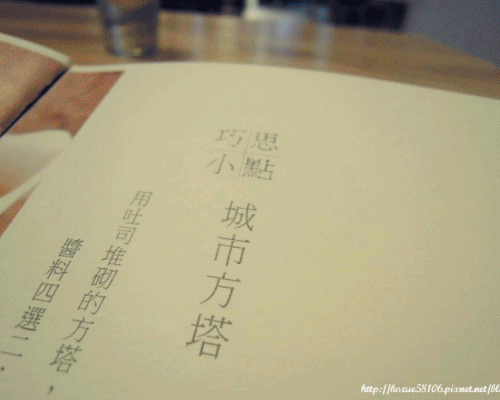 巧思
小點
城市方塔
用吐司堆砌的方塔，
醬料四選二，
http://hozue58106.pixnet.net/bl